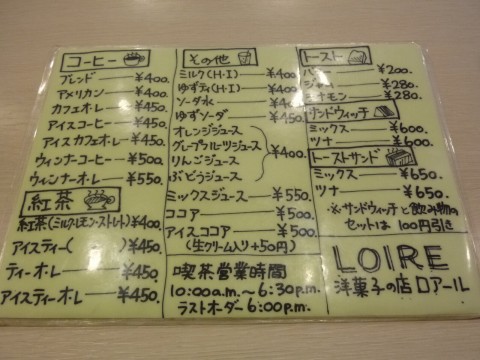 コーヒー
ブレンド ¥400.
アメリカン ¥400.
カフェオ·レ ¥450.
アイスコーヒー ¥450.
アイスカフェオ·レ ¥450.
ウィンナーコーヒー ¥500.
ウィンナーオ·レ ¥550.
紅茶
紅茶(ミルク·レモン·ストレート) ¥400.
アイスティー( ) ¥450.
ティーオ·レ ¥450.
アイスティーオ·レ ¥450.
その他
ミルク(H·I) ¥400
ゆずティ(H·I) ¥400
ソーダ水 ¥400
ゆずソーダ ¥450.
オレンジジュース
グレープフルーツジュース
りんごジュース
ぶどうジュース
¥400.
ミックスジュース ¥550.
ココア ¥500.
アイスココア ¥500.
(生クリーム入り+50円)
喫茶営業時間
10:00a.m.~6:30p.m.
ラストオーダー 6:00p.m.
トースト
バター ¥200.
ジャム ¥280.
シナモン ¥280.
サンドウィッチ
ミックス ¥600.
ツナ ¥600.
トーストサンド
ミックス ¥650.
ツナ ¥650.
※サンドウィッチと飲み物の
セットは 100円引き
LOIRE
洋菓子の店 ロアール